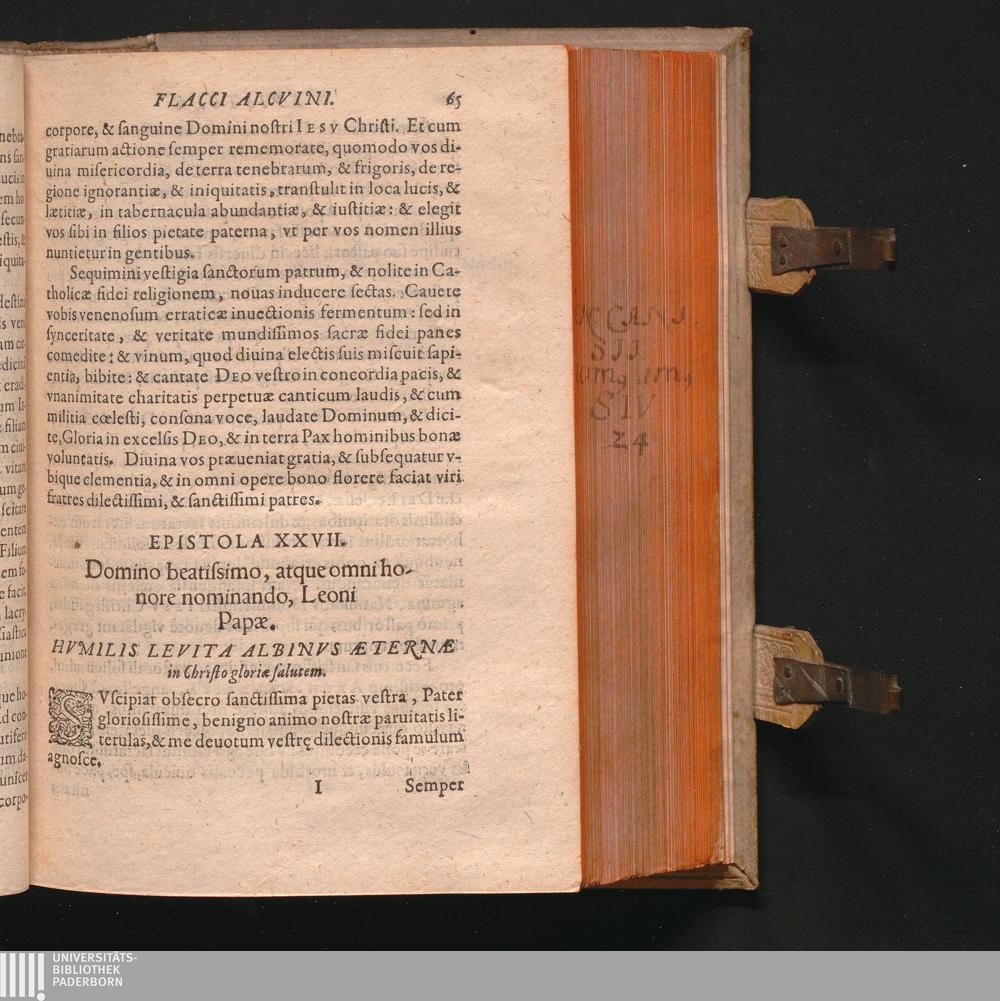 FLACCI ALCVINI. 65
corpore, & sanguine Domini nostri IESV Christi. Et cum
gratiarum actione semper rememorate, quomodo vos di-
uina misericordia, de terra tenebrarum, & frigoris, de re-
gione ignorantiæ, & iniquitatis, transtulit in loca lucis, &
lætitiæ, in tabernacula abundantiæ, & iustitiæ: & elegit
vos sibi in filios pietate paterna, vt per vos nomen illius
nuntietur in gentibus.
Sequimini vestigia sanctorum patrum, & nolite in Ca-
tholicæ fidei religionem, nouas inducere sectas. Cauete
vobis venenosum erraticæ inuectionis fermentum: sed in
synceritate, & veritate mundissimos sacræ fidei panes
comedite: & vinum, quod diuina electis suis miscuit sapi-
entia, bibite: & cantate DEO vestro in concordia pacis, &
vnanimitate charitatis perpetuæ canticum laudis, & cum
militia cœlesti, consona voce, laudate Dominum, & dici-
te, Gloria in excelsis DEO, & in terra Pax hominibus bonæ
voluntatis. Diuina vos præueniat gratia, & subsequatur v-
bique clementia, & in omni opere bono florere faciat viri
fratres dilectissimi, & sanctissimi patres.
EPISTOLA XXVII.
Domino beatissimo, atque omni ho-
nore nominando, Leoni
Papæ.
HVMILIS LEVITA ALBINVS ÆTERNÆ
in Christo gloriæ salutem.
SVscipiat obsecro sanctissima pietas vestra, Pater
gloriosissime, benigno animo nostræ paruitatis li-
terulas, & me deuotum vestrę dilectionis famulum
agnosce.
I Semper
SII
SIV
24
UNIVERSITÄTS-
BIBLIOTHEK
PADERBORN